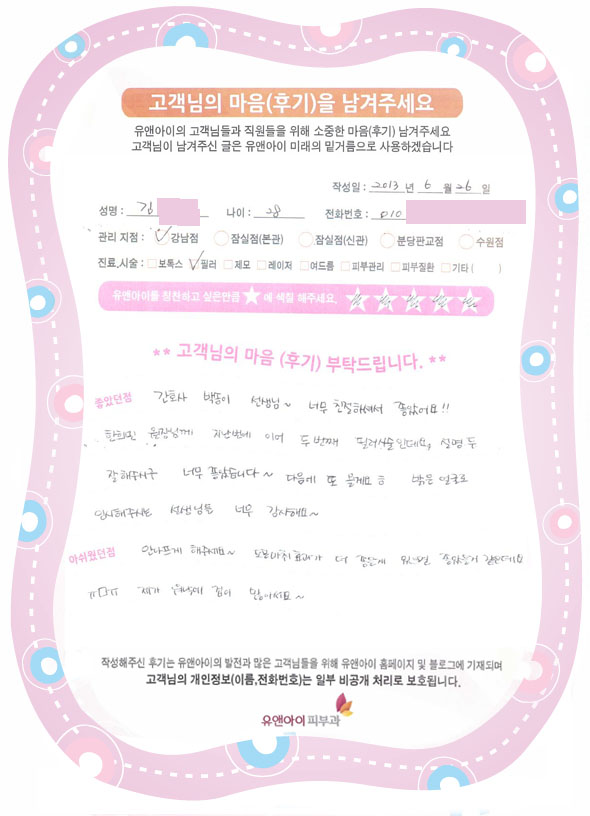 고객님의 마음(후기)을 남겨주세요
유앤아이의 고객님들과 직원들을 위해 소중한 마음(후기) 남겨주세요
고객님이 남겨주신 글은 유앤아이 미래의 밑거름으로 사용하겠습니다
작성일 : 2013 년 6 월 26 일
성명 : 김 나이 : 28 전화번호 : 010
관리 지점 : 강남점 잠실점(본관) 잠실점(신관) 분당판교점 수원점
진료,시술 : 보톡스 필러 제모 레이저 여드름 피부관리 피부질환 기타 ( )
유앤아이를 칭찬하고 싶은만큼 ★ 에 색칠 해주세요.
** 고객님의 마음 (후기) 부탁드립니다. **
좋았던점 간호사 선생님~ 너무 친절하셔서 좋았어요!!
원장님께 지난번에 이어 두번째 필러시술인데요, 설명 두
잘해주시구 너무 좋았습니다~ 다음에 또 올게요 밝은 얼굴로
인사해주시는 선생님들 너무 감사해요~
아쉬웠던점 안아프게 해주세요~ 효과가 더 있으면 좋았을거 같은데요
ㅠㅁㅠ 제가 겁이 많아서요~
작성해주신 후기는 유앤아이의 발전과 많은 고객님들을 위해 유앤아이 홈페이지 및 블로그에 기재되며
고객님의 개인정보(이름,전화번호)는 일부 비공개 처리로 보호됩니다.
유앤아이피부과